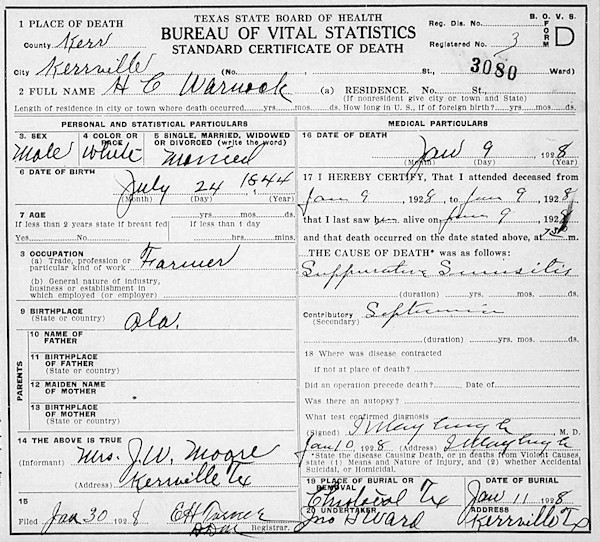 TEXAS STATE BOARD OF HEALTH
BUREAU OF VITAL STATISTICS
STANDARD CERTIFICATE OF DEATH
B. O. V. S.
FORM D
Reg. Dis. No.
Registered No. 3
3080
1 PLACE OF DEATH
County Kerr
City Kerrville (No. St., Ward)
2 FULL NAME H C Warnock (a) RESIDENCE. No. St.,
(If nonresident give city or town and State)
Length of residence in city or town where death occurred yrs. mos. ds. How long in U. S., if of foreign birth? yrs. mos. ds.
PERSONAL AND STATISTICAL PARTICULARS
3. SEX
Male
4 COLOR OR RACE
White
5 SINGLE, MARRIED, WIDOWED OR DIVORCED (write the word)
Married
6 DATE OF BIRTH
July 24 1844
(Month) (Day) (Year)
7 AGE yrs. mos. ds.
If less than 2 years state if breast fed If less than 1 day
Yes No hrs. mins.
8 OCCUPATION
(a) Trade, profession or particular kind of work Farmer
(b) General nature of industry, business or establishment in which employed (or employer)
9 BIRTHPLACE
(State or country) Ala.
PARENTS
10 NAME OF FATHER
11 BIRTHPLACE OF FATHER
(State or country)
12 MAIDEN NAME OF MOTHER
13 BIRTHPLACE OF MOTHER
(State or country)
14 THE ABOVE IS TRUE
(Informant) Mrs. J. W. Moore
(Address) Kerrville Tx
15
Filed Jan 30 1928 Registrar.
MEDICAL PARTICULARS
16 DATE OF DEATH
Jan 9 1928
(Month) (Day) (Year)
17 I HEREBY CERTIFY, That I attended deceased from
Jan 9, 1928 to Jan 9, 1928
that I last saw him alive on Jan 9, 1928
and that death occurred on the date stated above, at m.
THE CAUSE OF DEATH* was as follows:
Suppurative Sinusitis
(duration) yrs. mos. ds.
Contributory
(Secondary)
(duration) yrs. mos. ds.
18 Where was disease contracted
if not at place of death?
Did an operation precede death? Date of
Was there an autopsy?
What test confirmed diagnosis
(Signed) M. D.
Jan 10, 1928 (Address)
*State the disease Causing Death, or in deaths from Violent Causes, state (1) Means and Nature of Injury, and (2) whether Accidental Suicidal, or Homicidal.
19 PLACE OF BURIAL OR REMOVAL
Tx
DATE OF BURIAL
Jan 11 1928
20 UNDERTAKER
Ward
ADDRESS
Kerrville Tx